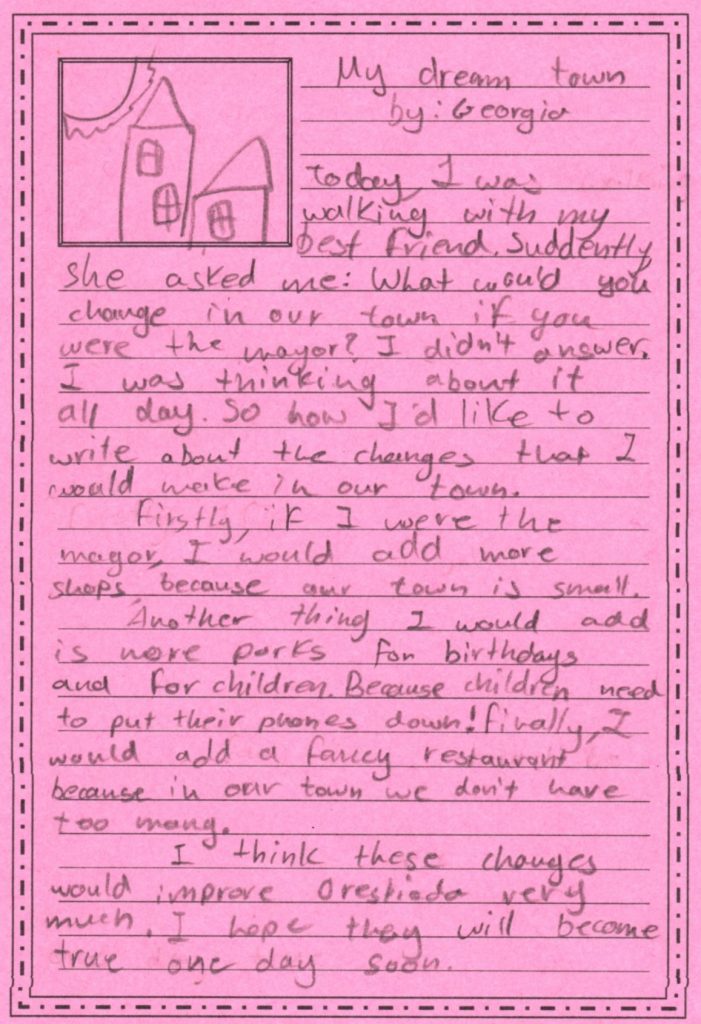 My dream town
by: Georgia
today, I was
walking with my
best friend. Suddenly,
she asked me: What would you
change in our town if you
were the mayor? I didn't answer.
I was thinking about it
all day. So now I'd like to
write about the changes that I
would make in our town.
Firstly, if I were the
mayor, I would add more
shops, because our town is small.
Another thing I would add
is more parks for birthdays
and for children. Because children need
to put their phones down! finally, I
would add a fancy restaurant
because in our town we don't have
too many.
I think these changes
would improve Orestiada very
much. I hope they will become
true one day soon.